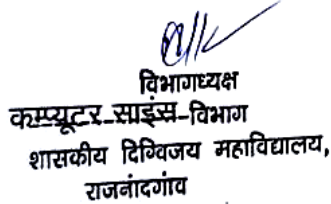 विभागध्यक्ष
कम्प्यूटर साइंस-विभाग
शासकीय दिग्विजय महाविद्यालय,
राजनांदगांव